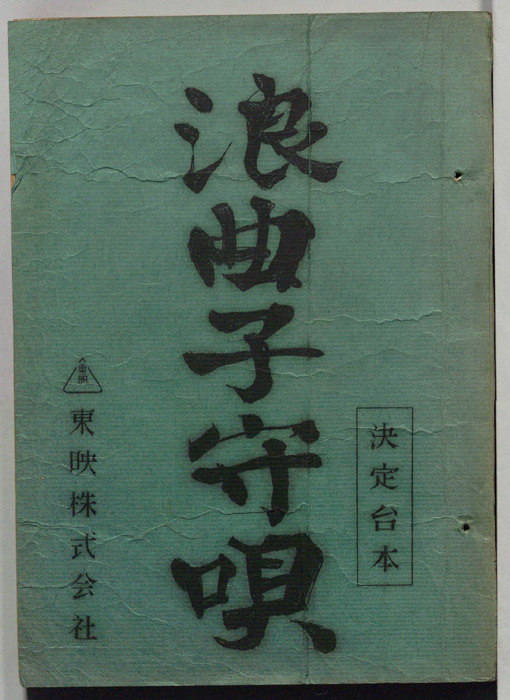 決定台本
浪曲子守唄
東映
東映株式会社